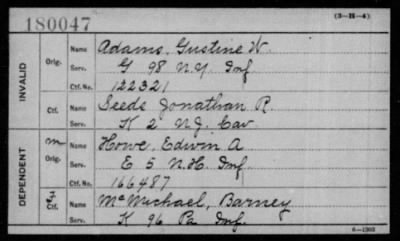 180047
(3-H-4)
INVALID
Orig. Name Adams, Gustine W.
Serv. G 98 N.Y. Inf.
Ctf. No. 122321
Ctf. Name Seeds Jonathan R.
Serv. K 2 N.J. Cav.
DEPENDENT
m Orig. Name Howe, Edwin A
Serv. E 5 N.H. Inf.
Ctf. No. 166487
Ctf. Name McMichael, Barney
Serv. K 96 Pa Inf.
6-1303